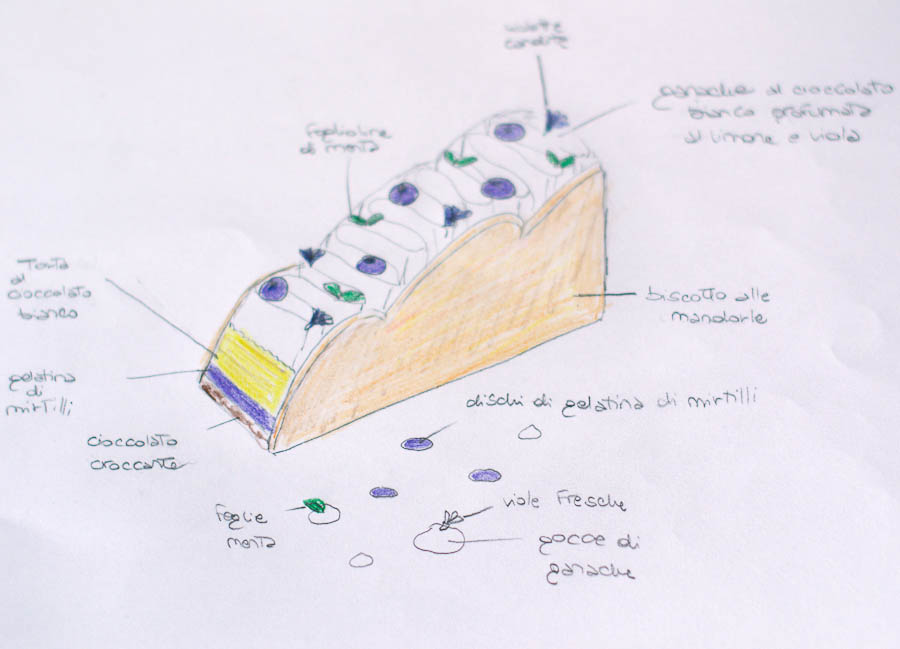 violette
candite
ganache al cioccolato
bianco profumata
al limone e viola
foglioline
di menta
Torta
al
cioccolato
bianco
biscotto alle
mandorle
gelatina
di
mirtilli
dischi di gelatina di mirtilli
cioccolato
croccante
viole fresche
foglie
menta
gocce di
ganache